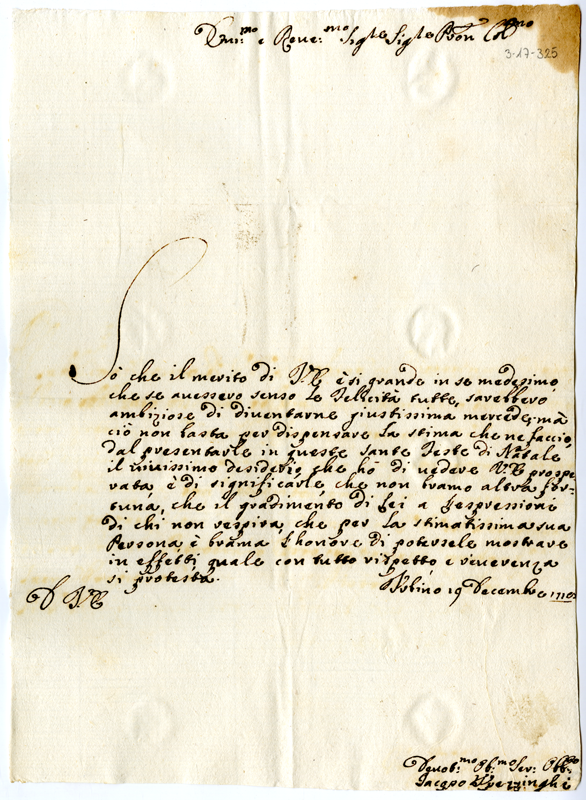 Emi:mo e Reve:mo Sigre Sigre Pron Colmo
3-17-325
Sò che il merito di V E è sì grande in se medesimo,
che se avessero senso le Felicità tutte, sarebbero
ambiziose di diventarne giustissima mercede; mà
ciò non basta per dispensare la stima che ne faccio,
dal presentarle in queste sante Feste di Natale
il vivissimo desiderio che hò di vedere V E prospe
rata, è di significarle che non bramo altra for-
tuna, che il gradimento di lei a l'espressione
di chi non respira, che per la stimatissima sua
Persona, è brama l'honore di potersele mostrare
in effetti quale con tutto rispetto, e riverenza
si protesta.
Urbino 19 Decembre
D V E
Devot:mo Ob:mo Ser: Obb:
Jacopo